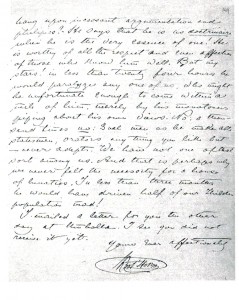 hang upon incessant argumentation and
philippic? He says that he is as destructive
when he is the very essence of one. He
is worthy of all the respect and even affection
of those who know him well. But my
stars! in less than twenty four hours he
would paralyze any one of us, who might
be unfortunate enough to come within a
mile of him, merely by his monotonous
piping about his own Swaraj. P.S. a then
send times us; God men as he made all
statesmen, orators anything you like but
- never adepts. We have not one of that
sort among us. And that is perhaps why
we never felt the necessity for a house
of lunatics. In less than three months
he would have driven half of our
population mad!
I mailed a letter for you the other
day at Umballa. I see you did not
receive it yet.
Yours ever affectionately
Koot Hoomi